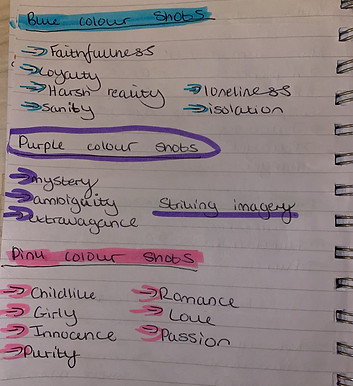 Blue colour shots
→ Faithfullness
→ Loyalty
→ Harsh reality → loneliness
→ Sanity → isolation
Purple colour shots
→ mystery
→ ambiguity Striking imagery
→ extravagance
Pink colour shots
→ Childlike → Romance
→ Girly → Love
→ Innocence → Passion
→ Purity